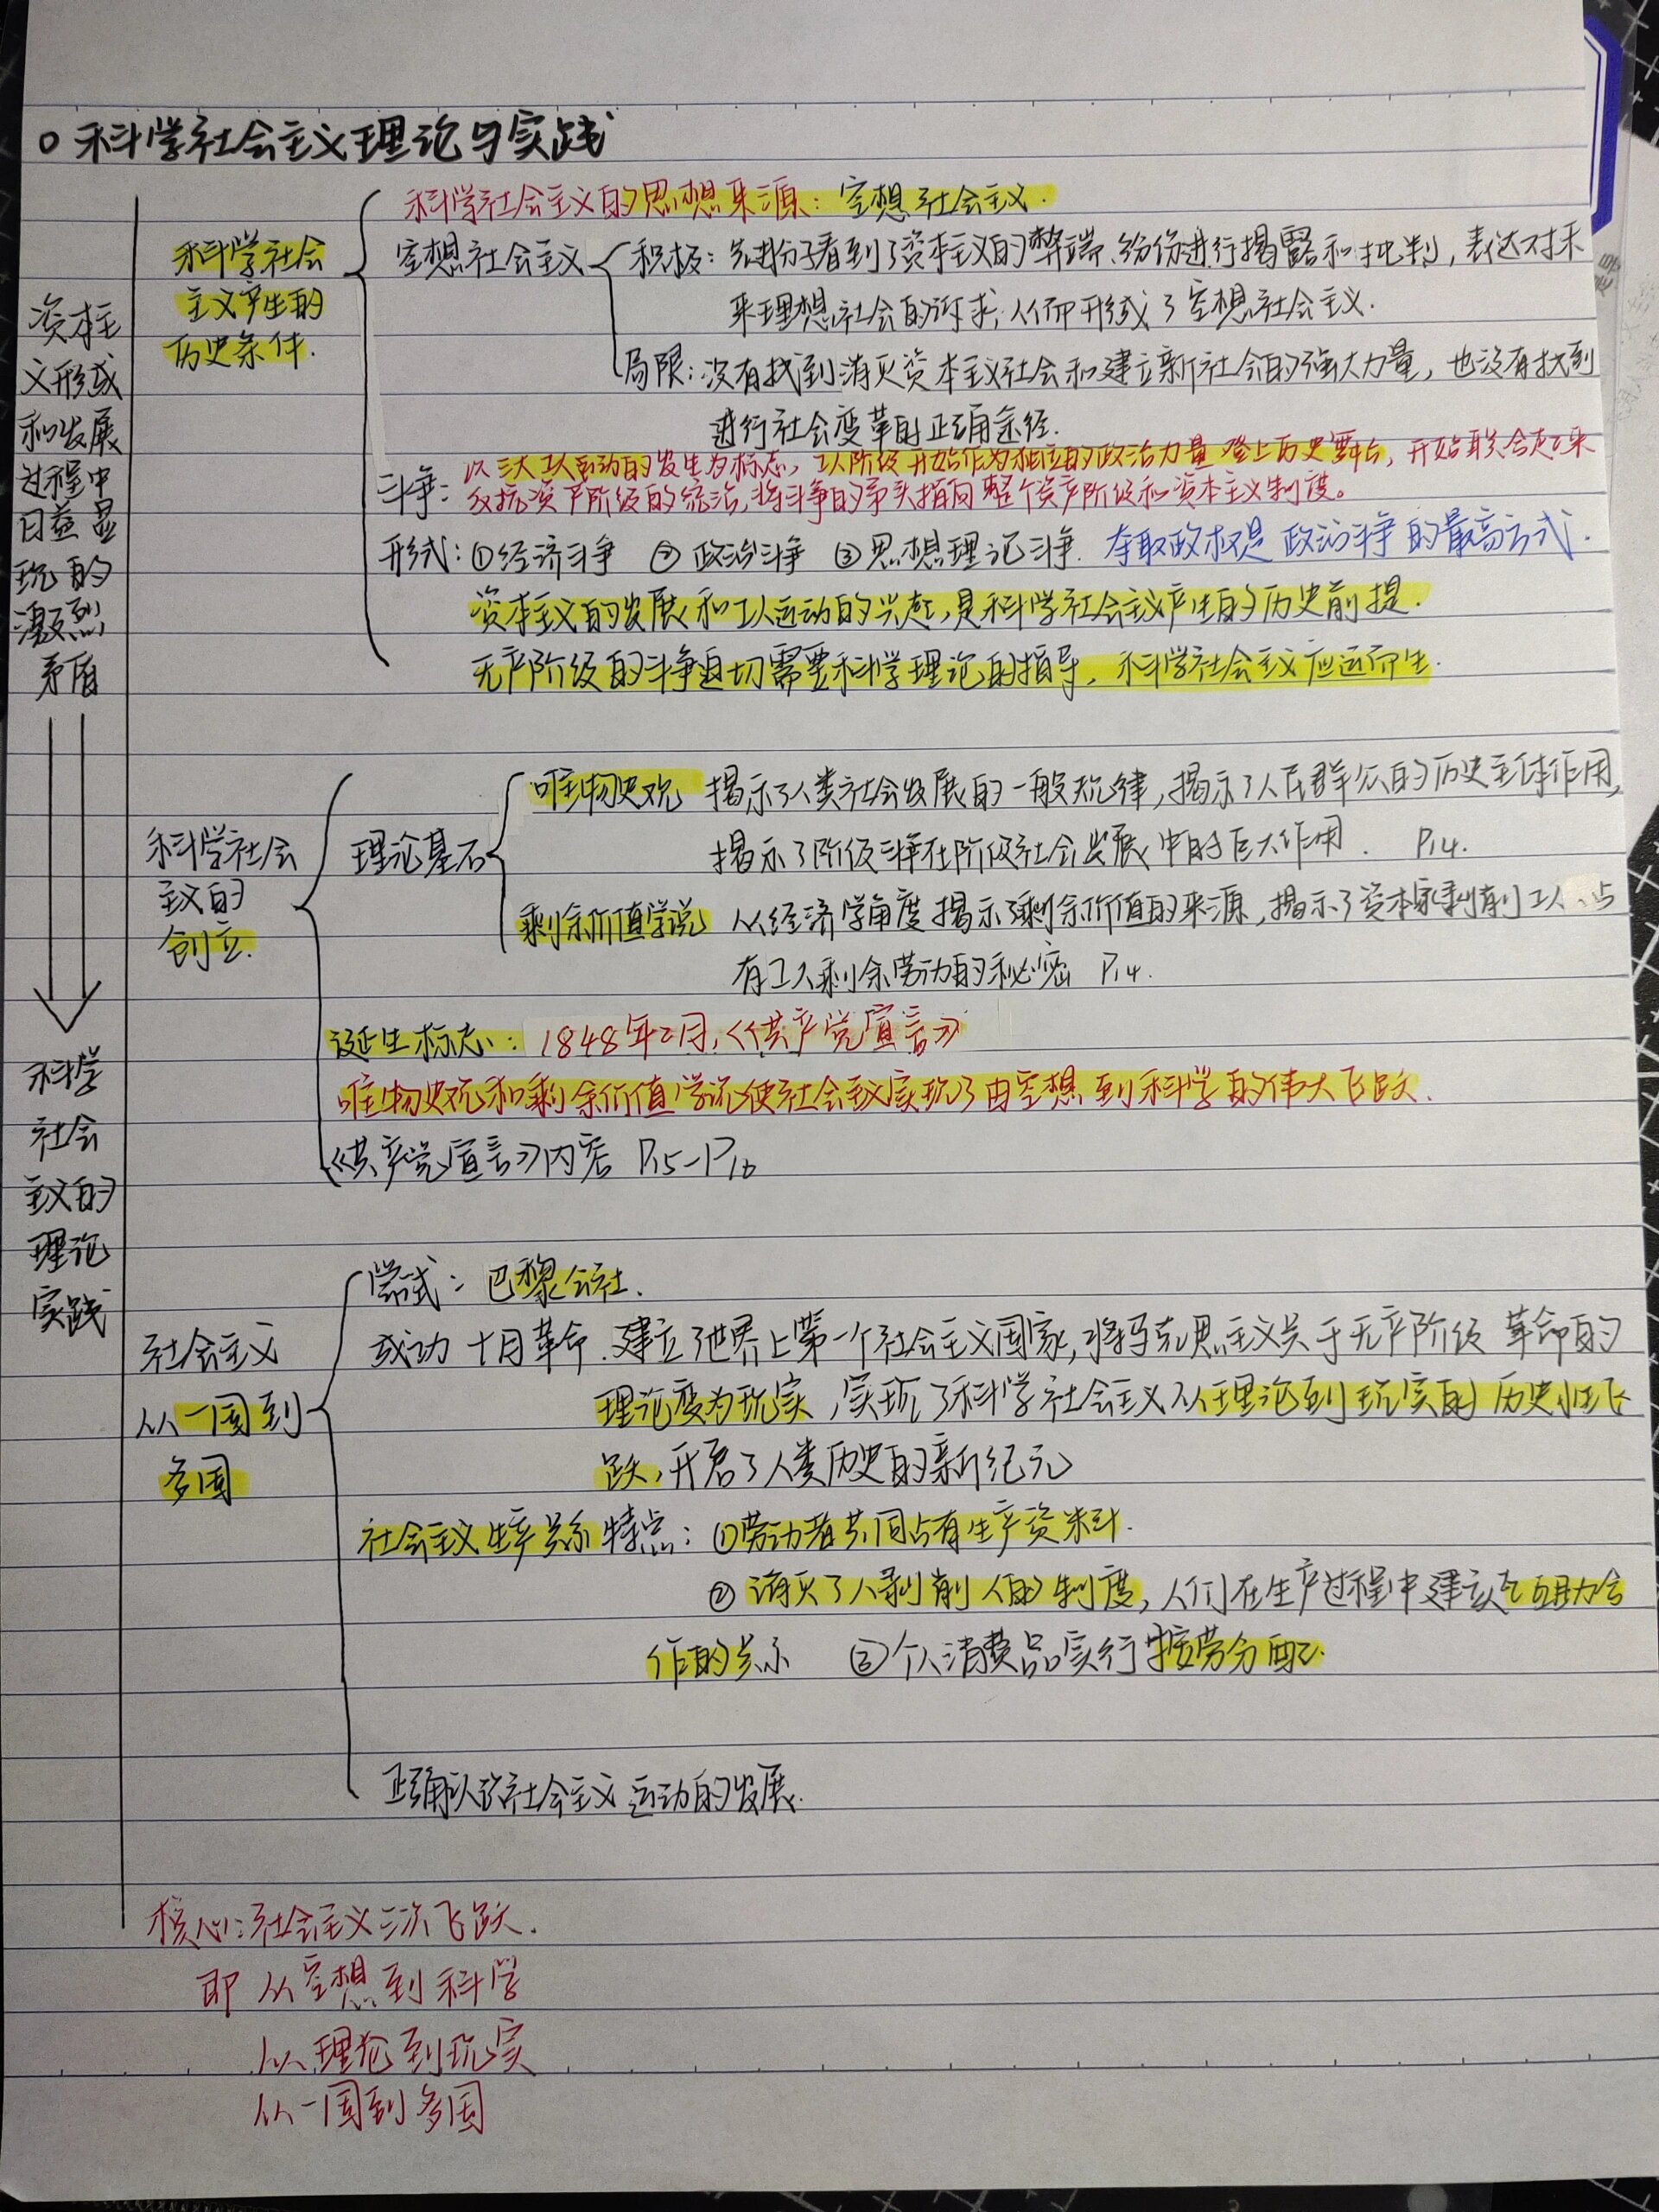 科学社会主义理论与实践
资本主
义形成
和发展
过程中
日益显
现的
激烈
矛盾
科学
社会
主义的
理论
实践
科学社会
主义产生的
历史条件.
科学社会主义的思想来源：空想社会主义.
空想社会主义
积极：先进分子看到了资本主义的弊端，纷纷进行揭露和批判，表达对未
来理想社会的诉求，从而形成了空想社会主义.
局限：没有找到消灭资本主义社会和建立新社会的强大力量，也没有找到
进行社会变革的正确途径.
斗争：
以三大工人运动的发生为标志，工人阶级开始作为独立的政治力量登上历史舞台，开始联合起来
反抗资产阶级的统治，将斗争的矛头指向整个资产阶级和资本主义制度。
形式：①经济斗争 ②政治斗争 ③思想理论斗争. 夺取政权是政治斗争的最高方式.
资本主义的发展和工人运动的兴起，是科学社会主义产生的历史前提.
无产阶级的斗争迫切需要科学理论的指导，科学社会主义应运而生.
科学社会
主义的
创立.
理论基石
唯物史观 揭示了人类社会发展的一般规律，揭示了人民群众的历史主体作用，
揭示了阶级斗争在阶级社会发展中的巨大作用. P14.
剩余价值学说 从经济学角度揭示了剩余价值的来源，揭示了资本家剥削工人、占
有工人剩余劳动的秘密 P14.
诞生标志：1848年2月，《共产党宣言》
唯物史观和剩余价值学说使社会主义实现了由空想到科学的伟大飞跃.
《共产党宣言》内容 P15-P16
社会主义
从一国到
多国
尝试：巴黎公社.
成功 十月革命. 建立了世界上第一个社会主义国家，将马克思主义关于无产阶级革命的
理论变为现实，实现了科学社会主义从理论到现实的历史性飞
跃，开启了人类历史的新纪元
社会主义生产关系特点：①劳动者共同占有生产资料.
② 消灭了人剥削人的制度，人们在生产过程中建立起互助合
作的关系 ③个人消费品实行按劳分配.
正确认识社会主义运动的发展.
核心：社会主义三次飞跃.
即 从空想到科学
从理论到现实
从一国到多国